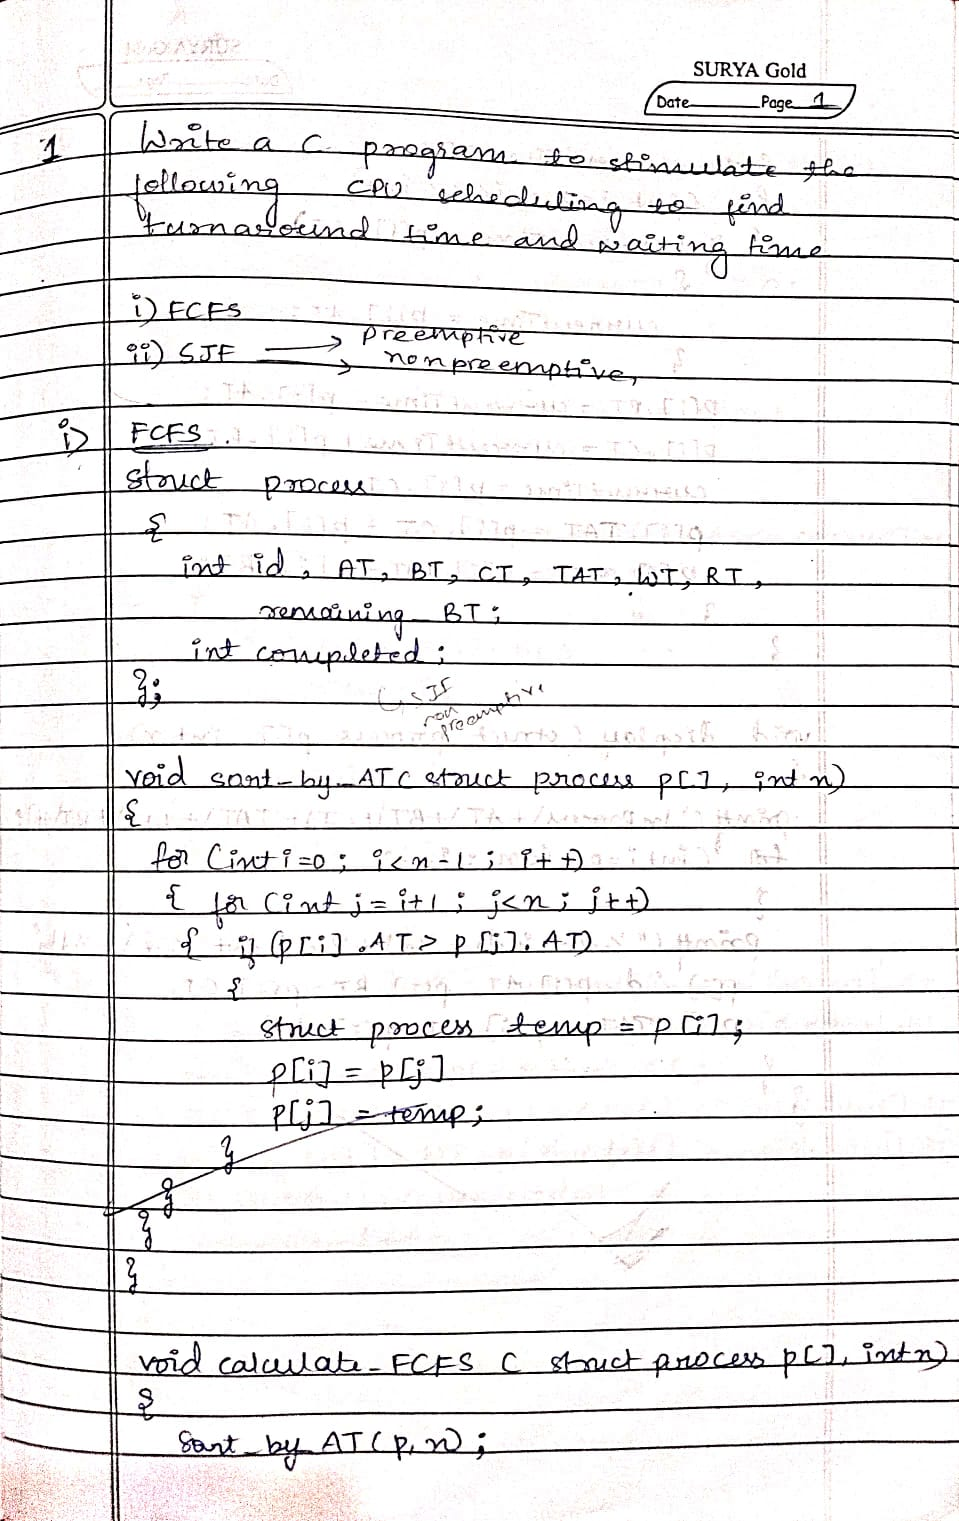 SURYA Gold
Date Page 1
1 Write a C program to stimulate the
following CPU scheduling to find
turnaround time and waiting time
i) FCFS
ii) SJF → preemptive
→ nonpreemptive,
i) FCFS.
struct process
{
int id, AT, BT, CT, TAT, WT, RT,
remaining BT;
int completed;
};
↳ SJF
non
preemptive
void sort_by_AT( struct process p[], int n)
{
for (int i=0; i<n-1; i++)
{ for (int j=i+1; j<n; j++)
{ if (p[i].AT> p[j].AT)
{
struct process temp = p[i];
p[i] = p[j]
p[j] = temp;
}
}
}
}
void calculate_FCFS ( struct process p[], int n)
{
sort_by AT(p,n);